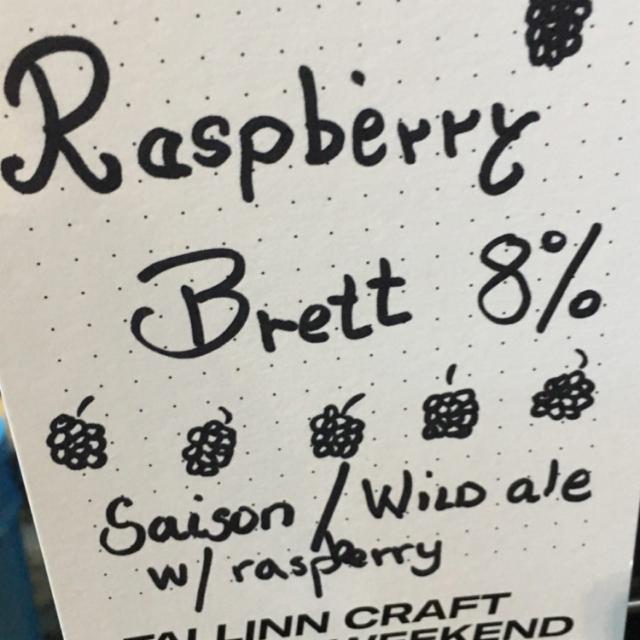 Raspberry
Brett 8%
Saison / Wild ale
w/ rasperry
TALLINN CRAFT
WEEKEND